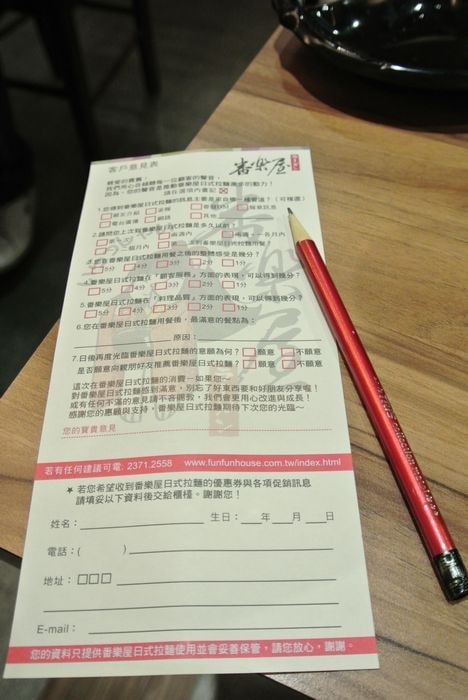 客戶意見表
番樂屋
親愛的貴賓：
我們用心在傾聽每一位顧客的聲音，
因為，您的聲音是推動番樂屋日式拉麵進步的動力！
請在選項內畫記
1.您得到番樂屋日式拉麵的訊息主要是來自哪一種管道？(可複選)
親友介紹
網路
其他
2.請問您上次到番樂屋日式拉麵是多久以前？
兩週內
第一次到番樂屋日式拉麵用餐
3.您在番樂屋日式拉麵用餐之後的整體感受是幾分？
5分 4分 3分 2分 1分
4.番樂屋日式拉麵在「顧客服務」方面的表現，可以得到幾分？
5分 4分 3分 2分 1分
5.番樂屋日式拉麵在「料理品質」方面的表現，可以得到幾分？
5分 4分 3分 2分 1分
6.您在番樂屋日式拉麵用餐後，最滿意的餐點為：
原因：
7.日後再度光臨番樂屋日式拉麵的意願為何？ 願意 不願意
是否願意向親朋好友推薦番樂屋日式拉麵 願意 不願意
這次在番樂屋日式拉麵的消費－如果您－
對番樂屋日式拉麵感到滿意，別忘了好東西要和好朋友分享喔！
或有任何不滿的意見請不吝賜教，我們會更用心改進與成長！
感謝您的惠顧與支持，番樂屋日式拉麵期待下次您的光臨～
您的寶貴意見
若有任何建議可電: 2371.2558 www.funfunhouse.com.tw/index.html
★ 若您希望收到番樂屋日式拉麵的優惠券與各項促銷訊息
請填妥以下資料後交給櫃檯。謝謝您！
姓名： 生日： 年 月 日
電話：( )
地址：□□□
E-mail：
您的資料只提供番樂屋日式拉麵使用並會妥善保管，請您放心，謝謝。